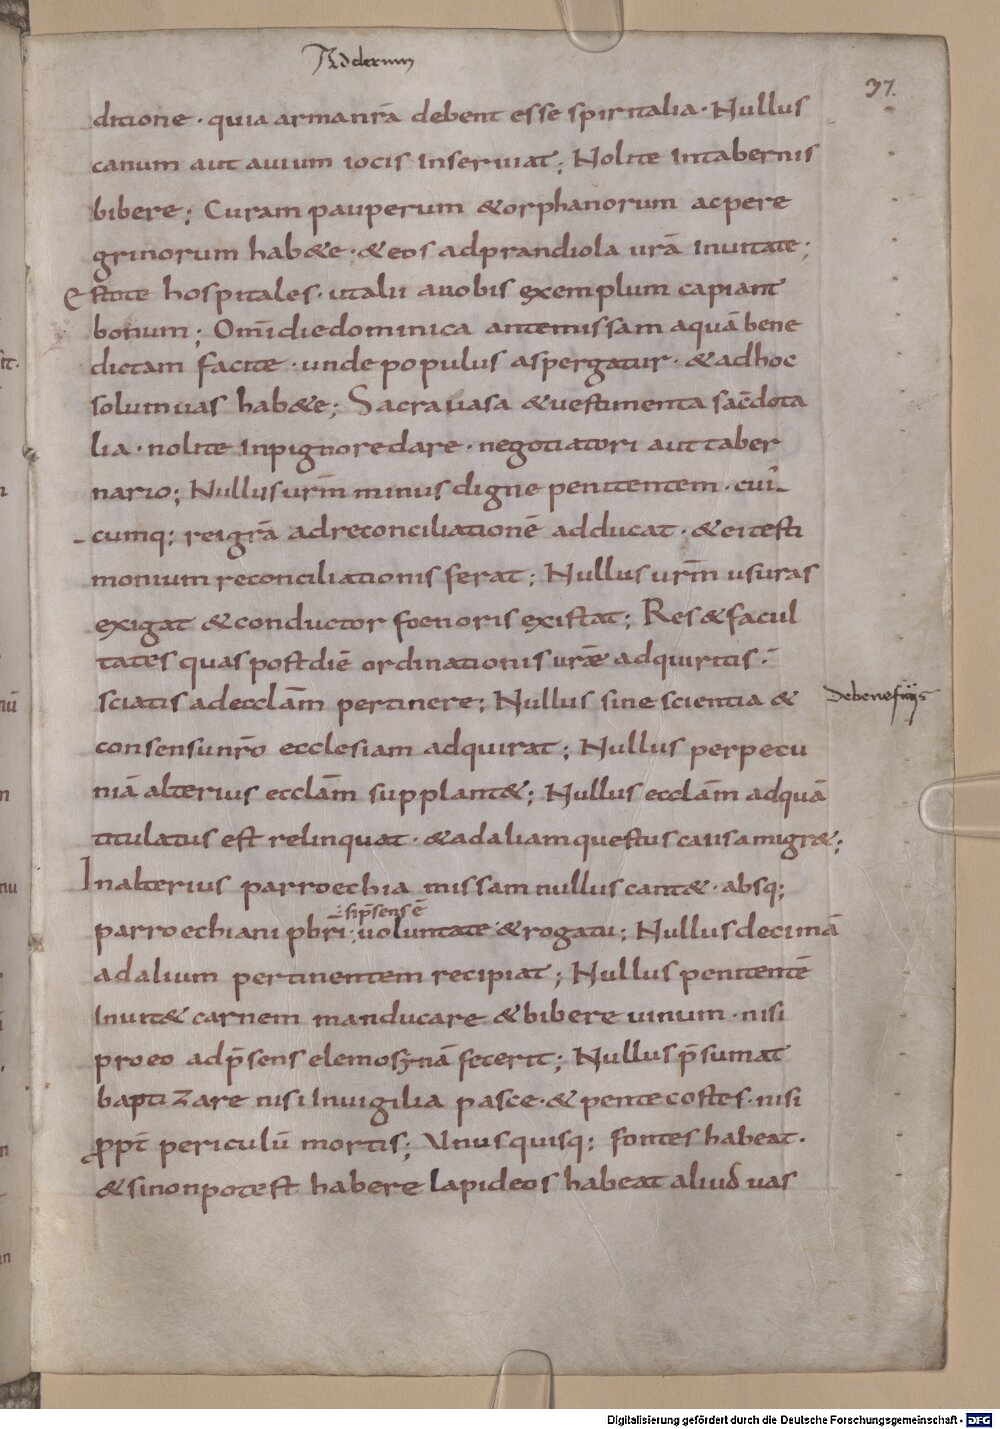 Ad clerum
37.
ditione · quia arma nrā debent esse spiritalia · Nullus
canum aut auium iocis inseruiat; Nolite in tabernis
bibere; Curam pauperum & orphanorum ac pere
grinorum hab&e · & eos ad prandiola urā inuitate;
Estote hospitales · ut alii a uobis exemplum capiant
bonum; Omi die dominica ante missam aquā bene
dictam facite · unde populus aspergatur · & ad hoc
solum uas hab&e; Sacra uasa & uestimenta sacdota
lia · nolite in pignore dare · negotiatori aut taber
nario; Nullus urm minus digne penitentem · cui
cumq; rei grā ad reconciliationē adducat · & ei testi
monium reconciliationis ferat; Nullus urm usuras
exigat & conductor foenoris existat; Res & facul
tates quas post diē ordinationis uræ adquiritis ·
sciatis ad ecclam pertinere; Nullus sine scientia &
de beneficiis
consensu nro ecclesiam adquirat; Nullus per pecu
niā alterius ecclam supplant&; Nullus ecclam ad quā
titulatus est relinquat · & ad aliam questus causa migr&;
In alterius parroechia missam nullus cant& · absq;
sipsensē
parroechiani pbri · uoluntate & rogatu; Nullus decimā
ad alium pertinentem recipiat; Nullus penitentē
inuit& carnem manducare & bibere uinum · nisi
pro eo ad psens elemosynā fecerit; Nullus psumat
baptizare nisi in uigilia pasce · & pentecostes · nisi
ppt periculū mortis; Unusquisq; fontes habeat ·
& si non potest habere lapideos habeat aliud uas
Digitalisierung gefördert durch die Deutsche Forschungsgemeinschaft - DFG